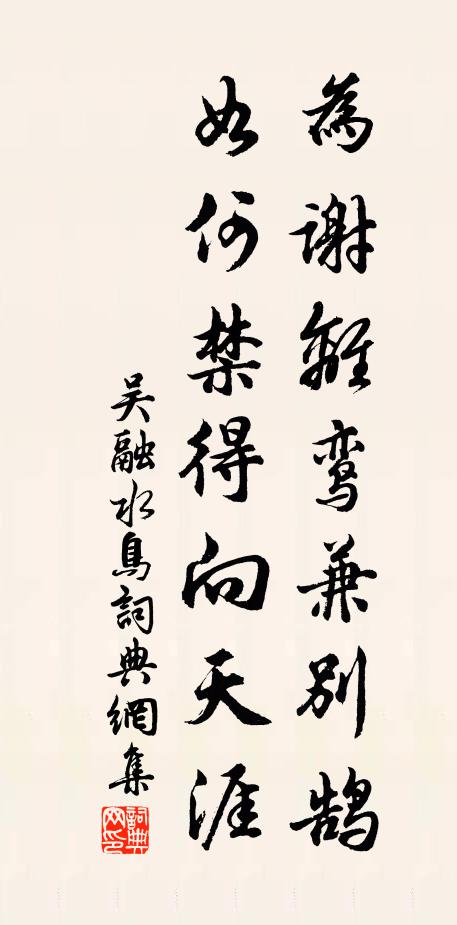 為謝離鸾兼别鹄
如何禁得向天涯
吴融水鳥詞典網集
詞典网印